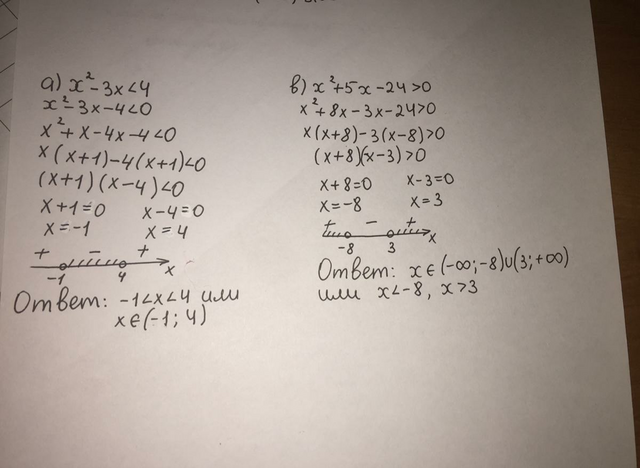 а) x²-3x<4
x²-3x-4<0
x²+x-4x-4<0
x(x+1)-4(x+1)<0
(x+1)(x-4)<0
x+1=0 x-4=0
x=-1 x=4
+ - +
-1 4 x
Ответ: -1<x<4 или
x∈(-1; 4)
в) x²+5x-24>0
x²+8x-3x-24>0
x(x+8)-3(x-8)>0
(x+8)(x-3)>0
x+8=0 x-3=0
x=-8 x=3
+ - +
-8 3 x
Ответ: x∈(-∞;-8)∪(3;+∞)
или x<-8, x>3